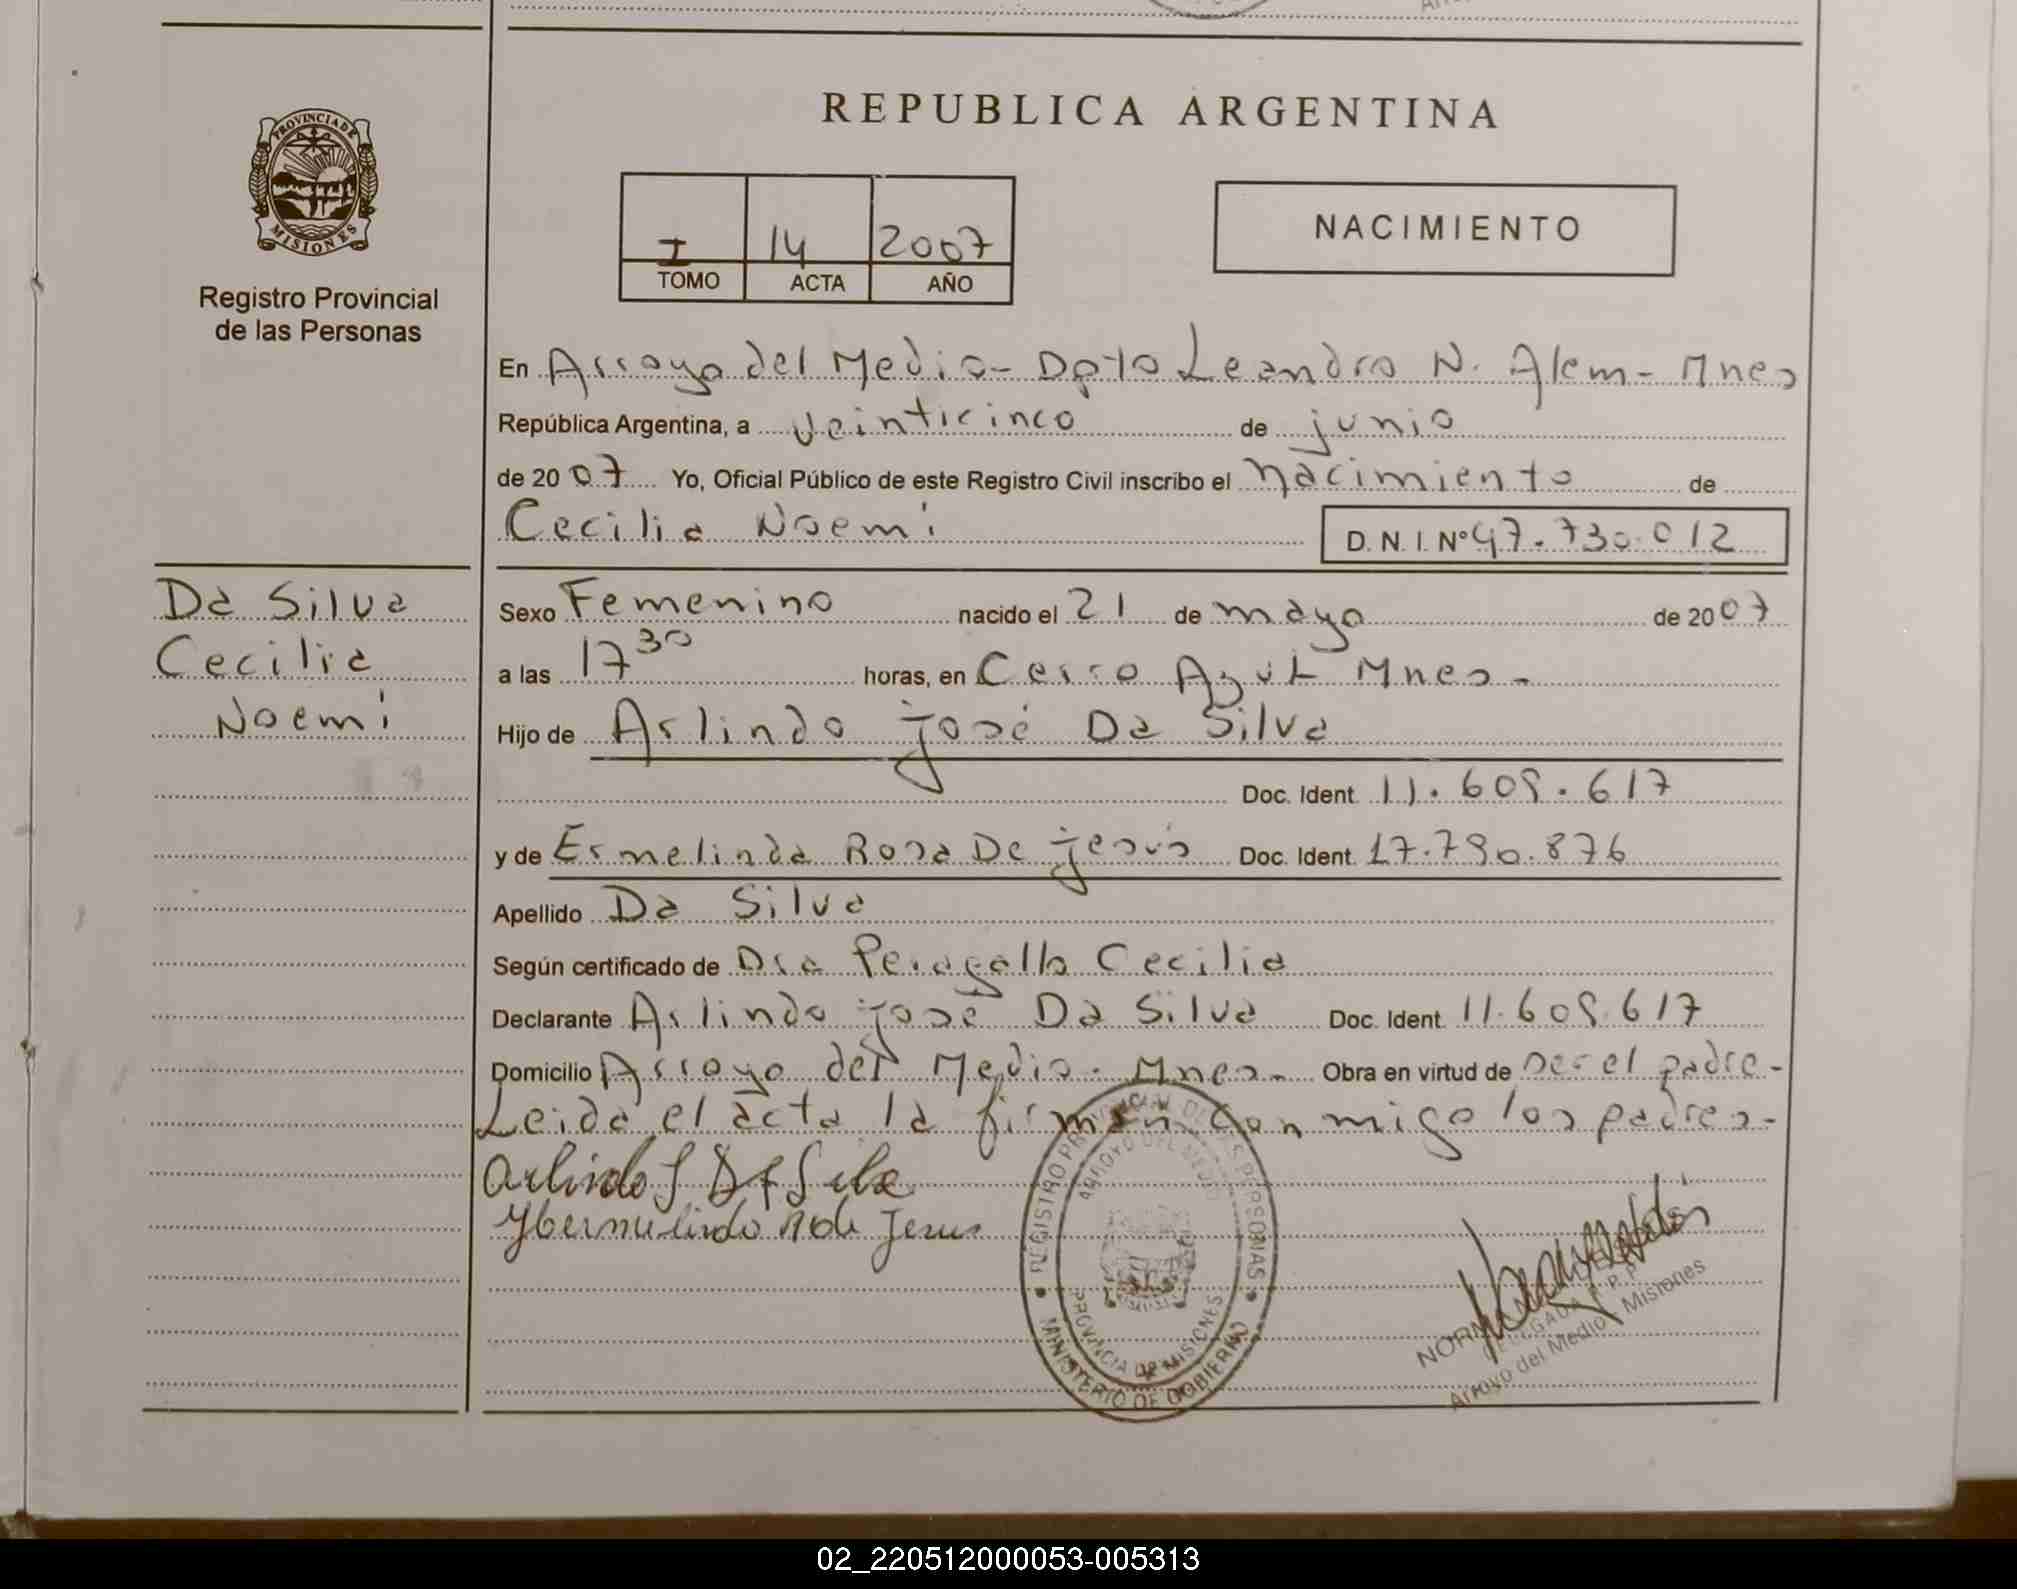 PROVINCIA DE
MISIONES
Registro Provincial
de las Personas
REPUBLICA ARGENTINA
I 14 2007
TOMO ACTA AÑO
NACIMIENTO
En Arroyo del Medio - Dpto Leandro N. Alem - Mnes
República Argentina, a veinticinco de junio
de 2007 Yo, Oficial Público de este Registro Civil inscribo el nacimiento de
Cecilia Noemí D. N. I. Nº 47.730.012
Da Silva
Cecilia
Noemí
Sexo Femenino nacido el 21 de mayo de 2007
a las 17 30 horas, en Cerro Azul Mnes -
Hijo de Arlindo José Da Silva
Doc. Ident. 11.609.617
y de Ermelinda Rosa De Jesús Doc. Ident. 17.790.876
Apellido Da Silva
Según certificado de Dra Peragallo Cecilia
Declarante Arlindo José Da Silva Doc. Ident. 11.609.617
Domicilio Arroyo del Medio - Mnes - Obra en virtud de ser el padre -
Leida el acta la firman conmigo los padres -
Arlindo J Da Silva
Jesus
REGISTRO PROVINCIAL DE LAS PERSONAS
ARROYO DEL MEDIO
PROVINCIA DE MISIONES
MINISTERIO DE GOBIERNO
NORMA
DELEGADA R.P.P.
Arroyo del Medio - Misiones
02_220512000053-005313